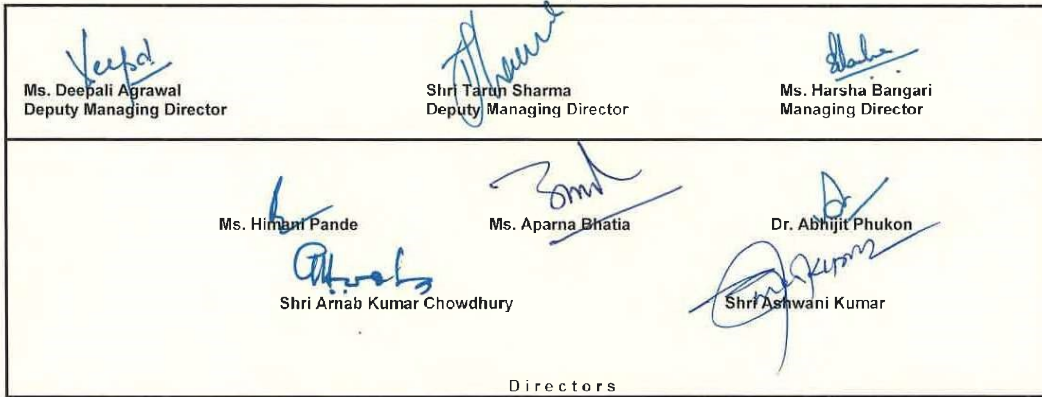 Ms. Deepali Agrawal
Deputy Managing Director
Shri Tarun Sharma
Deputy Managing Director
Ms. Harsha Bangari
Managing Director
Ms. Himani Pande
Ms. Aparna Bhatia
Dr. Abhijit Phukon
Shri Arnab Kumar Chowdhury
Shri Ashwani Kumar
Directors